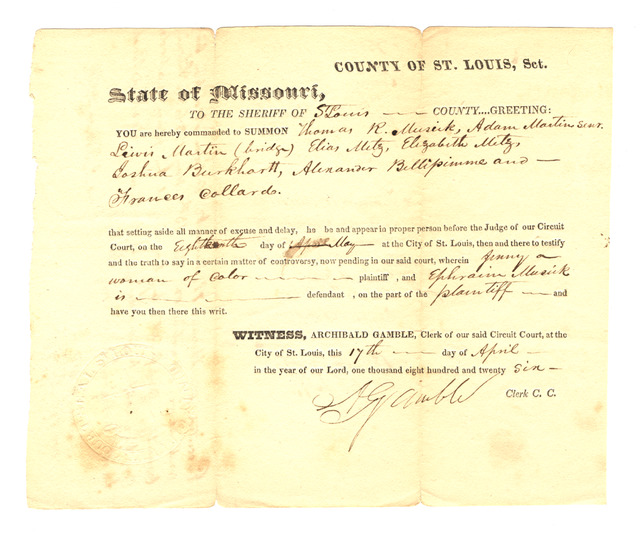 COUNTY OF ST. LOUIS, Sct.
State of Missouri,
TO THE SHERIFF OF St Louis COUNTY....GREETING:
YOU are hereby commanded to SUMMON Thomas R. Musick, Adam Martin Senr.
Lewis Martin (bridge) Elias Metz, Elizabeth Metz,
Joshua Burkhart, Alexander Bellissimme and
Frances Collard.
that setting aside all manner of excuse and delay, he be and appear in proper person before the Judge of our Circuit
Court, on the Eighteenth day of April May at the City of St. Louis, then and there to testify
and the truth to say in a certain matter of controversy, now pending in our said court, wherein Jenny a
woman of Color plaintiff, and Ephraim Musick
is defendant, on the part of the plaintiff and
have you then there this writ.
WITNESS, ARCHIBALD GAMBLE, Clerk of our said Circuit Court, at the
City of St. Louis, this 17th day of April
in the year of our Lord, one thousand eight hundred and twenty six
A Gamble Clerk C. C.